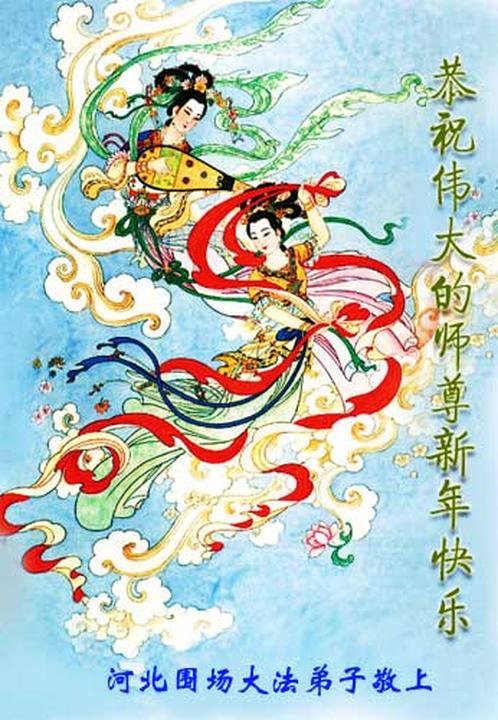 恭祝伟大的师尊新年快乐
河北围场大法弟子敬上